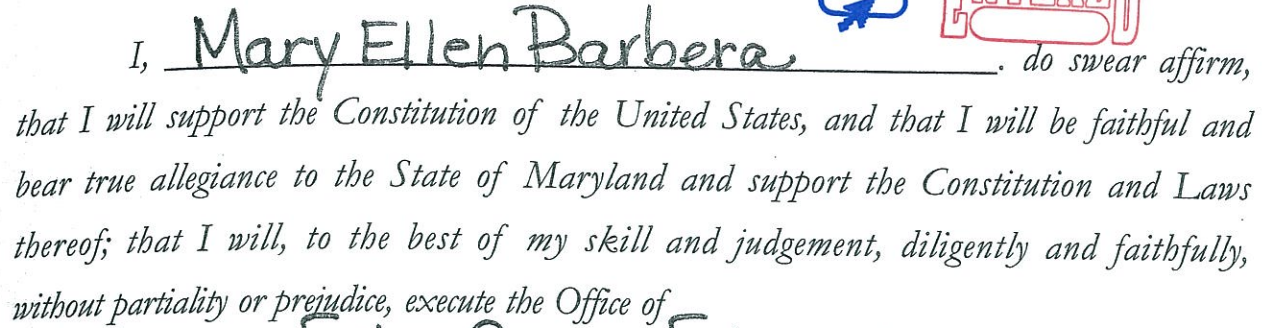 I, Mary Ellen Barbera . do swear affirm,
that I will support the Constitution of the United States, and that I will be faithful and
bear true allegiance to the State of Maryland and support the Constitution and Laws
thereof; that I will, to the best of my skill and judgement, diligently and faithfully,
without partiality or prejudice, execute the Office of